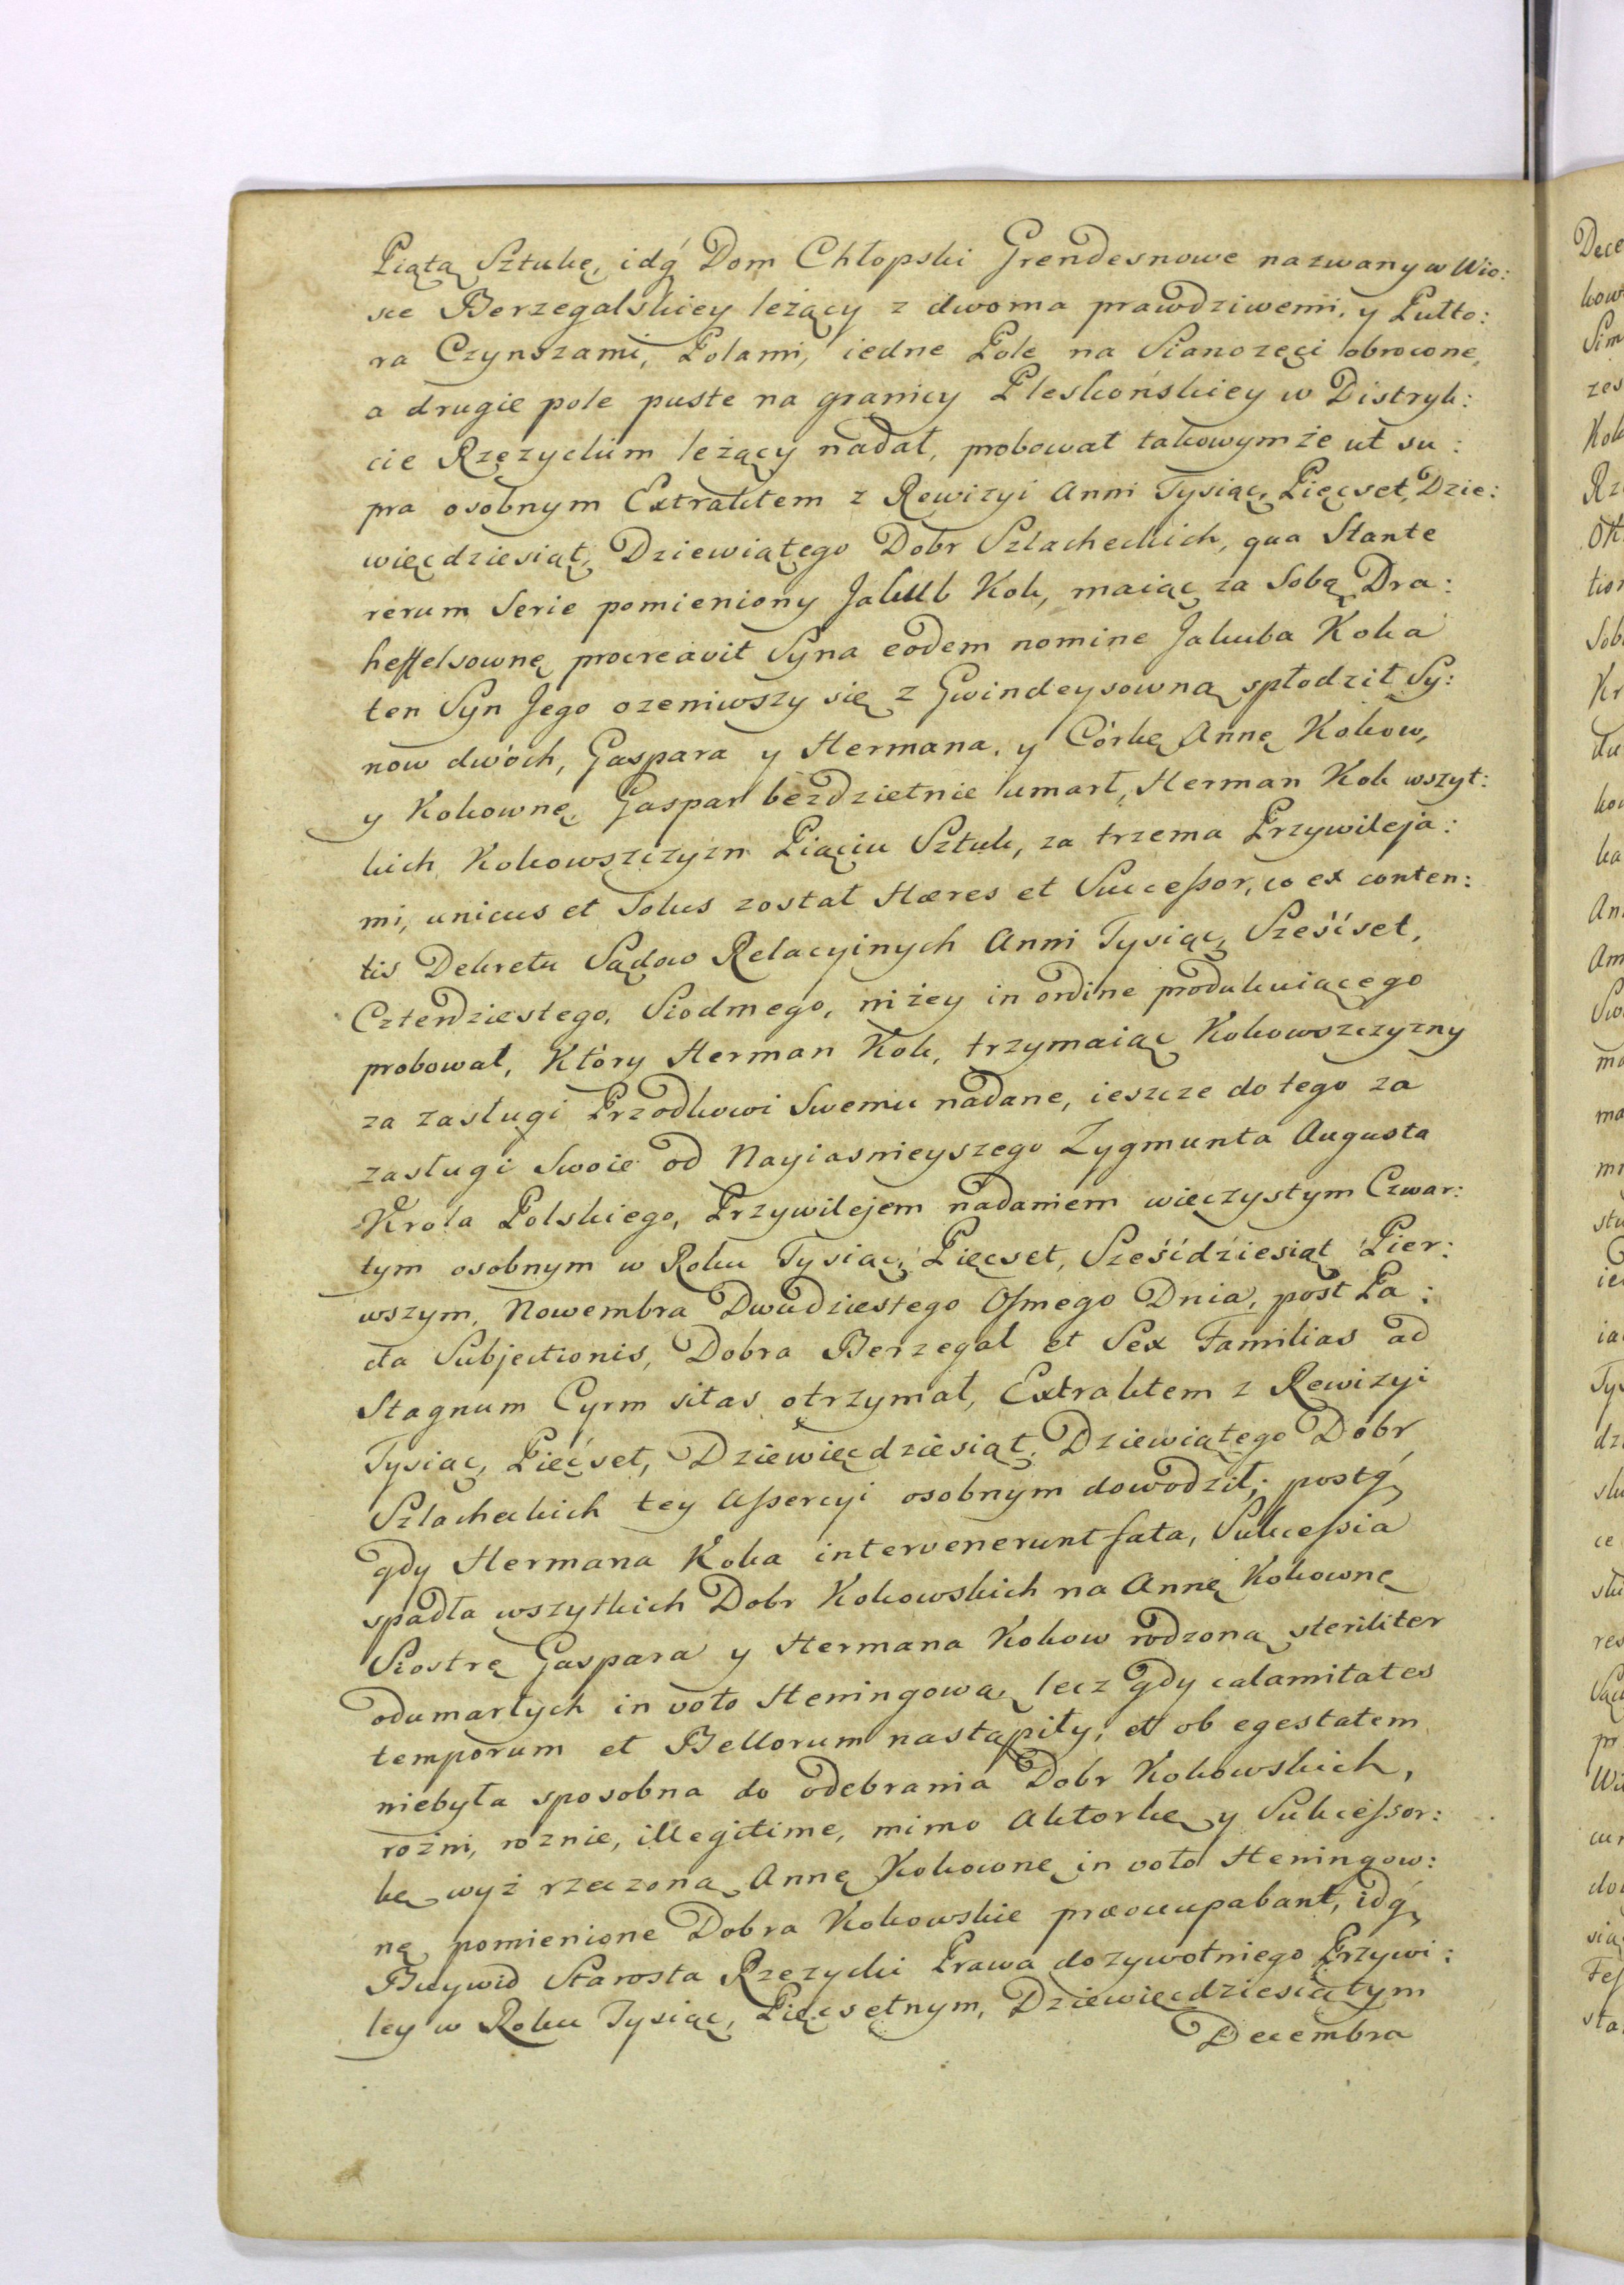 Piątą Sztukę, idq́ Dom Chłopski Grendesnowe nazwany w Wio:
sce Berzegalskiey leżący z dwoma prawdziwemi, y Pułto:
ra Czynszami, Polami, iedne Pole na Sianożęci obrocone,
a drugie pole puste na granicy Pleskońskiey w Distryk:
cie Rzęzyckim leżący nadał, probował takowymże ut su:
pra osobnym Extraktem z Rewizyi Anni Tysiąc, Pięcset, Dzie:
więcdziesiąt, Dziewiątego Dobr Szlacheckich, qua Stante
rerum Serie pomieniony Jakub Kok, maiąc za Sobą Dra:
heffelsownę procreavit Syna eodem nomine Jakuba Koka
ten Syn Jego ozeniwszy się z Gwindeysowną spłodził Sy:
now dwóch, Gaspara y Hermana, y Córkę Annę Kokow,
y Kokownę, Gaspar bezdzietnie umarł, Herman Kok wszyt:
kich Kokowszczyzn Piąciu Sztuk, za trzema Przywileja:
mi, unicus et Solus został Hæres et Successor, co ex conten:
tis Dekretu Sądow Relacyinych Anni Tysiąc, Sześćset,
Czterdziestego, Siodmego, niżey in ordine produkuiącego
probował, Który Herman Kok, trzymaiąc Kokowszczyzny
za zasługi Przodkowi Swemu nadane, ieszcze do tego za
zasługi Swoie od Nayiasnieyszego Zygmunta Augusta
Krola Polskiego, Przywilejem nadaniem wieczystym Czwar:
tym osobnym w Roku Tysiąc, Pięcset, Sześćdźiesiąt Pier:
wszym, Nowembra Dwudziestego Osmego Dnia, post Pa:
cta Subjectionis, Dobra Berzegal et Sex Familias ad
Stagnum Cyrm sitas otrzymał, Extraktem z Rewizyi
Tysiąc, Pięćset, Dziewięcdziesiąt, Dziewiątego Dobr
Szlacheckich tey Assercyi osobnym dowodził; postq́
gdy Hermana Koka intervenerunt fata, Sukcessia
spadła wszytkich Dobr Kokowskich na Annę Kokownę
Siostrę Gaspara y Hermana Kokow rodzoną steriliter
odumarłych in voto Heningową, lecz gdy calamitates
temporum et Bellorum nastąpiły, et ob egestatem
niebyła sposobna do odebrania Dobr Kokowskich,
rożni, roznie, illegitime, mimo Aktorkę y Sukcessor:
kę wyż rzeczoną Annę Kokownę in voto Heningow:
nę pomienione Dobra Kokowskie præoccupabant, idq́
Buywid Starosta Rzezycki Prawa dozywotniego Przywi:
ley w Roku Tysiąc, Pięcsetnym, Dziewięcdziesiątym
Decembra